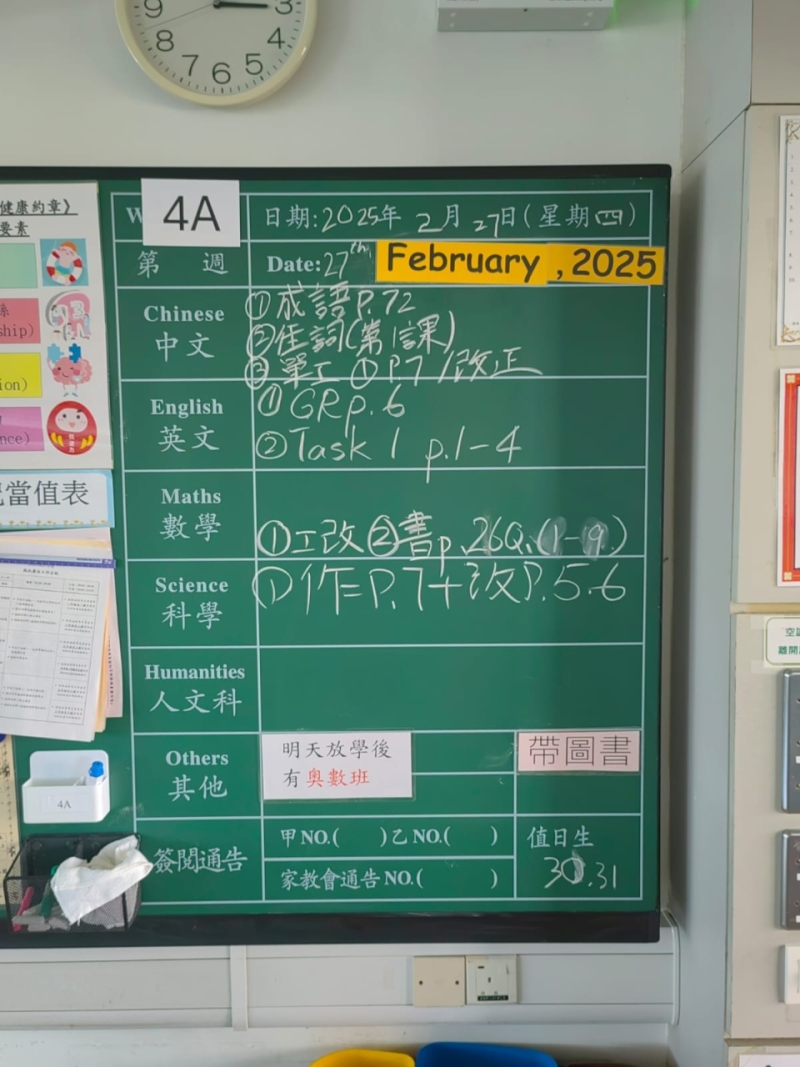 9 3
8 4
7 6 5
健康約章》
要素
ship)
ion)
nce)
當值表
4A
W
日期:2025年 2月 27日(星期四)
第 週
Date:27th February , 2025
Chinese
中文
① 成語 P.72
② 任詞(第1課)
③ 單工 ① P.7 / 改正
English
英文
① GR p.6
② Task 1 p.1-4
Maths
數學
① 工改 ② 書 p.26Q.(1-9.)
Science
科學
① 作= P.7 + 改 P.5.6
Humanities
人文科
Others
其他
明天放學後
有奧數班
帶圖書
4A
簽閱通告
甲 NO.( ) 乙 NO.( )
家教會通告 NO.( )
值日生
30.31
離開